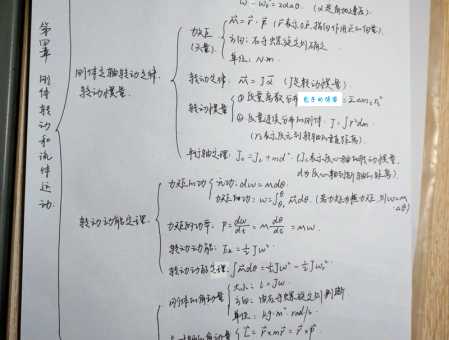 ω²-ω₀²=2αΔθ. (α是角加速度).
第四章 刚体转动和流体运动
刚体定轴转动定律. 转动惯量.
力矩(矢量).
M=r·F (r表示O点指向作用点的向量).
方向: 右手螺旋定则确定
单位: N·m
转动定律. M=Jα (J是转动惯量)
转动惯量
① 质量离散分布 =ΣΔmᵢrᵢ²
② 质量连续分布的刚体. J=∫r²dm.
(r表示质元到转轴的垂直距离).
平行轴定理. J₀=Jc+md². (Jc表示质心轴的转动惯量,
d为质心轴到转轴的距离).
转动动能定理.
力矩的功
元功: dw=Mdθ
力矩的功: w=∫Mdθ. (若力矩为恒力矩, 则w=MΔθ)
力矩的功率: P=dw/dt=M dθ/dt=Mω.
转动动能: Ek=½Jω²
转动动能定理. ∫Mdθ=½Jω²-½Jω₀².
刚体的角动量
大小: L=Jω
方向: 由右手螺旋定则判断
单位: kg·m²·rad/s.
的角动量
L=r×mv=r×p.